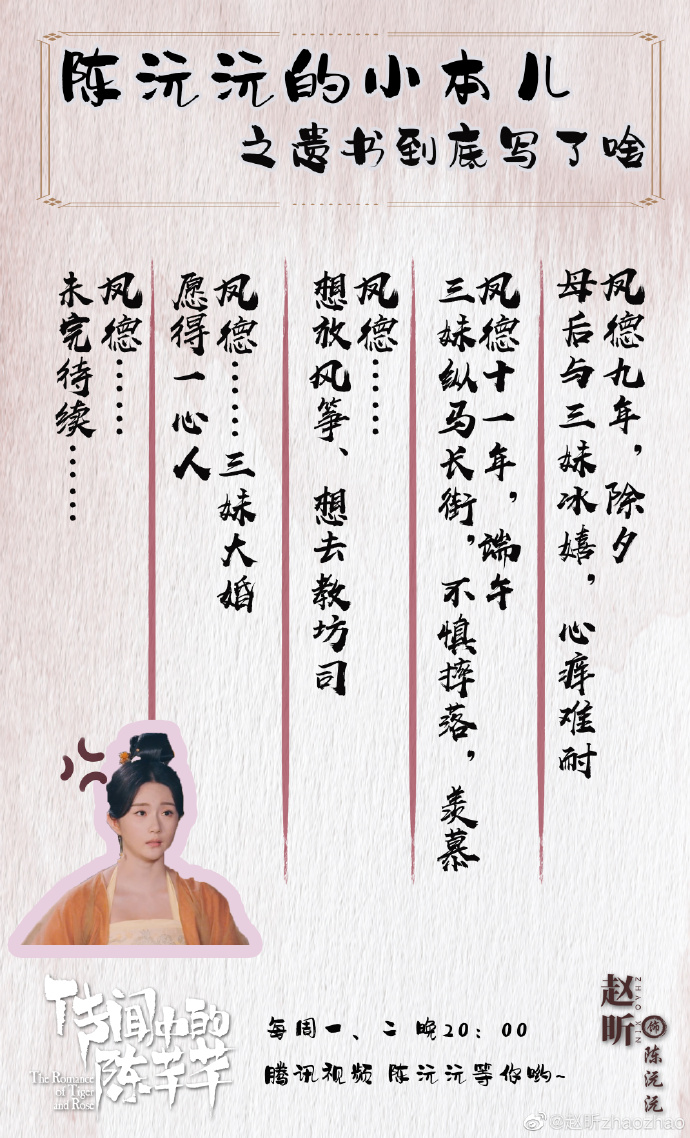 陈沅沅的小本儿
之遗书到底写了啥
凤德九年，除夕
母后与三妹冰嬉，心痒难耐
凤德十一年，端午
三妹纵马长街，不慎摔落，羡慕
凤德……
想放风筝、想去教坊司
凤德……三妹大婚
愿得一心人
凤德……
未完待续……
传闻中的
陈芊芊
The Romance
of Tiger
and Rose
每周一、二 晚20：00
腾讯视频 陈沅沅等你哟~
赵昕
ZHAO XIN
饰
陈沅沅
@赵昕zhaozhao